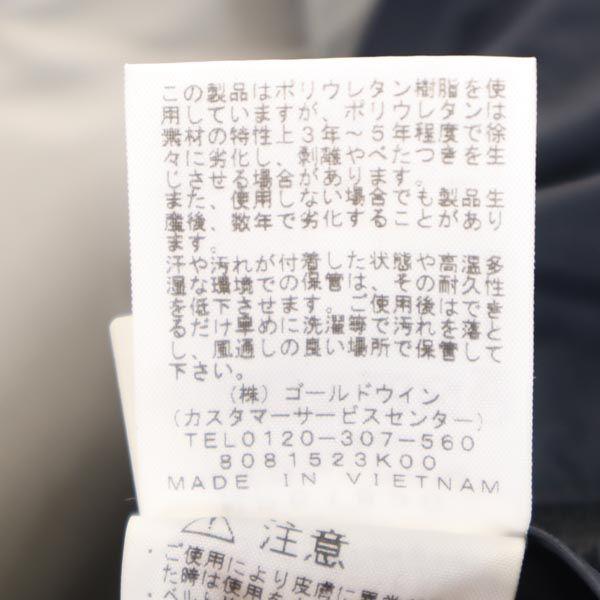 この製品はポリウレタン樹脂を使
用していますが、ポリウレタンは
素材の特性上3年〜5年程度で徐
々に劣化し、剥離やべたつきを生
じさせる場合があります。
また、使用しない場合でも製品生
産後、数年で劣化することがあり
ます。
汗や汚れが付着した状態や高温多
湿な環境での保管は、その耐久性
を低下させます。ご使用後はでき
るだけ早めに洗濯等で汚れを落と
し、風通しの良い場所で保管して
下さい。
(株)ゴールドウイン
(カスタマーサービスセンター)
TEL0120-307-560
8081523K00
MADE IN VIETNAM
注意
・ご使用により皮膚に異常
た時は使用を
・ベルト